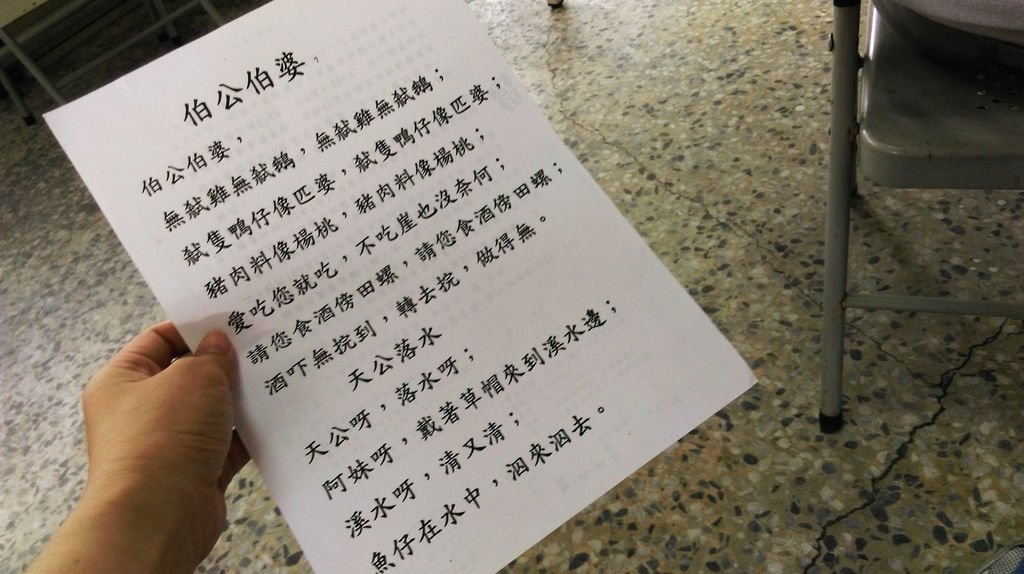 伯公伯婆，
伯公伯婆，
無弒雞無弒鵝，無弒雞無弒鵝；
弒隻鴨仔像匹婆，弒隻鴨仔像匹婆；
豬肉料像楊桃，豬肉料像楊桃；
愛吃您就吃，不吃崖也沒奈何；
請您食酒傍田螺，請您食酒傍田螺；
酒吓無捖到，轉去捖，做得無。
天公落水
天公呀，落水呀；
阿妹呀，戴著草帽來到溪水邊；
溪水呀，清又清；
魚仔在水中，泗來泗去。